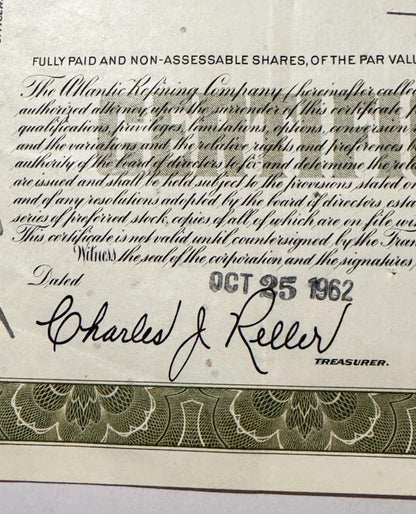 FULLY PAID AND NON-ASSESSABLE SHARES, OF THE PAR VALU
The Atlantic Refining Company (hereinafter calle
authorized attorney, upon the surrender of this certificate
qualifications, privileges, limitations, options, conversion
and the variations and the relative rights and preferences
authority of the board of directors to fix and determine the rela
are issued and shall be held subject to the provisions stated o
and of any resolutions adopted by the board of directors esta
series of preferred stock, copies of all of which are on file wi
This certificate is not valid until countersigned by the Tran
Witness the seal of the corporation and the signatures
Dated OCT 25 1962
Charles J Reller
TREASURER.